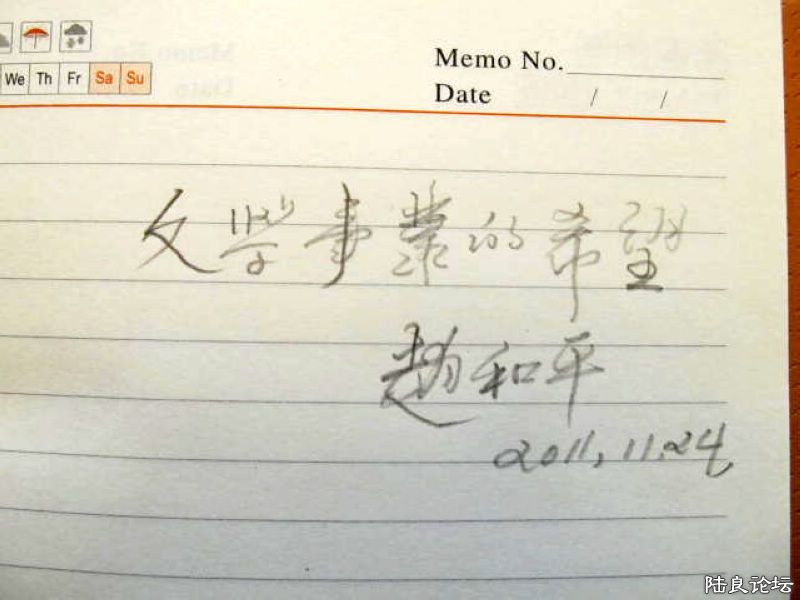 We Th Fr Sa Su
Memo No.
Date / /
文学事業的希望
趙和平
2011.11.24
陆良论坛